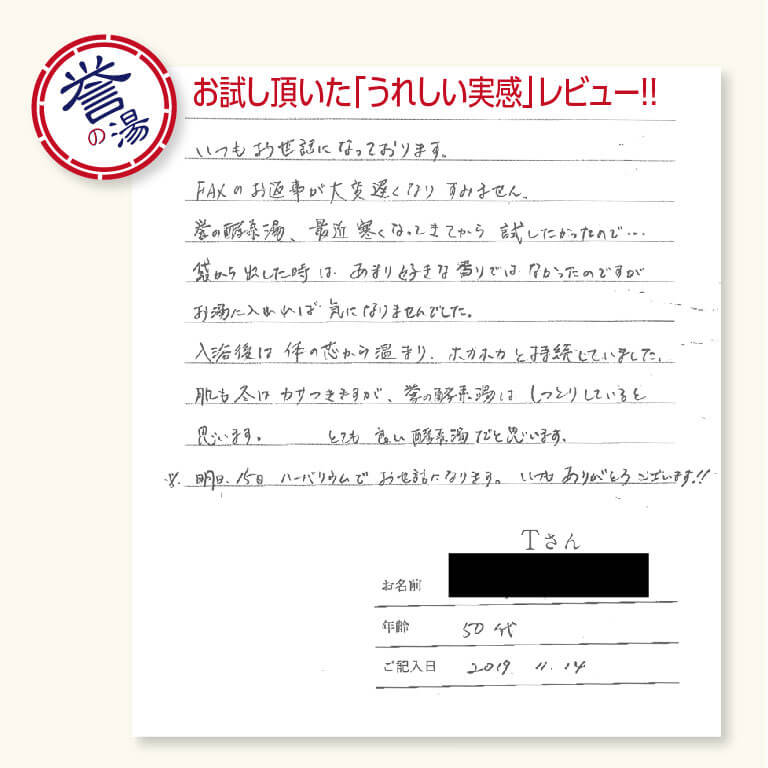 誉の湯
お試し頂いた「うれしい実感」レビュー!!
いつもお世話になっております。
FAXのお返事が大変遅くなり すみません。
誉の酵素湯、最近寒くなってきてから 試したかったので…
袋から出した時は あまり好きな香りではなかったのですが
お湯に入れれば 気になりませんでした。
入浴後は 体の芯から温まり、ホカホカと持続していました。
肌も冬はカサつきますが、誉の酵素湯は しっとりしていると
思います。 とても 良い酵素湯だと思います。
※. 明日、15日 ハーバリウムで お世話になります。いつも ありがとうございます!!
Tさん
お名前
年齢 50代
ご記入日 2019 11.14